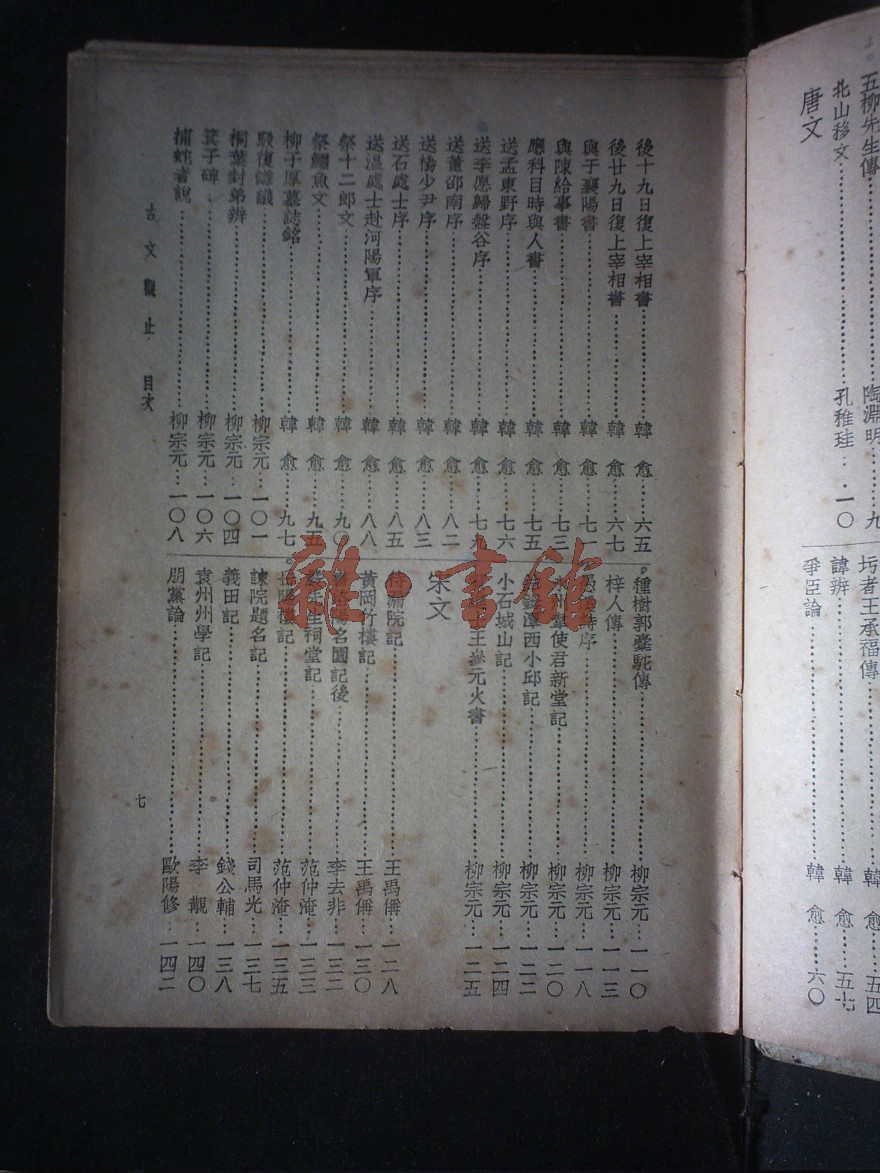 五柳先生傳……陶淵明…九
北山移文……孔稚珪…一〇
唐文
圬者王承福傳……韓愈…五四
諱辨……韓愈…五七
爭臣論……韓愈…六〇
後十九日復上宰相書……韓愈…六五
後廿九日復上宰相書……韓愈…六七
與于襄陽書……韓愈…七一
與陳給事書……韓愈…七三
應科目時與人書……韓愈…七五
送孟東野序……韓愈…七六
送李愿歸盤谷序……韓愈…七九
送董邵南序……韓愈…八二
送楊少尹序……韓愈…八三
送石處士序……韓愈…八五
送溫處士赴河陽軍序……韓愈…八八
祭十二郎文……韓愈…九〇
祭鱷魚文……韓愈…九五
柳子厚墓誌銘……韓愈…九七
駁復讎議……柳宗元…一〇一
桐葉封弟辨……柳宗元…一〇四
箕子碑……柳宗元…一〇六
捕蛇者說……柳宗元…一〇八
種樹郭橐駝傳……柳宗元…一一〇
梓人傳……柳宗元…一一三
愚溪詩序……柳宗元…一一八
永州韋使君新堂記……柳宗元…一二〇
鈷鉧潭西小邱記……柳宗元…一二二
小石城山記……柳宗元…一二四
王參元火書……柳宗元…一二五
宋文
待漏院記……王禹偁…一二八
黃岡竹樓記……王禹偁…一三〇
洛陽名園記後……李去非…一三二
先生祠堂記……范仲淹…一三三
岳陽樓記……范仲淹…一三五
諫院題名記……司馬光…一三七
義田記……錢公輔…一三八
袁州州學記……李覯…一四〇
朋黨論……歐陽修…一四二
古文觀止 目次
七
雜·書館